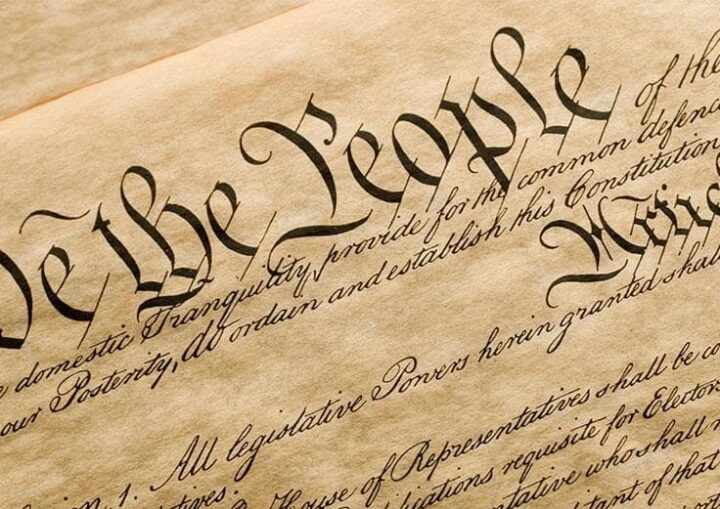 We the People of the
domestic Tranquility, provide for the common defence
our Posterity, do ordain and establish this Constitution
Article
1. All legislative Powers herein granted shall
House of Representatives shall be
requisite for Electors
who shall
of that